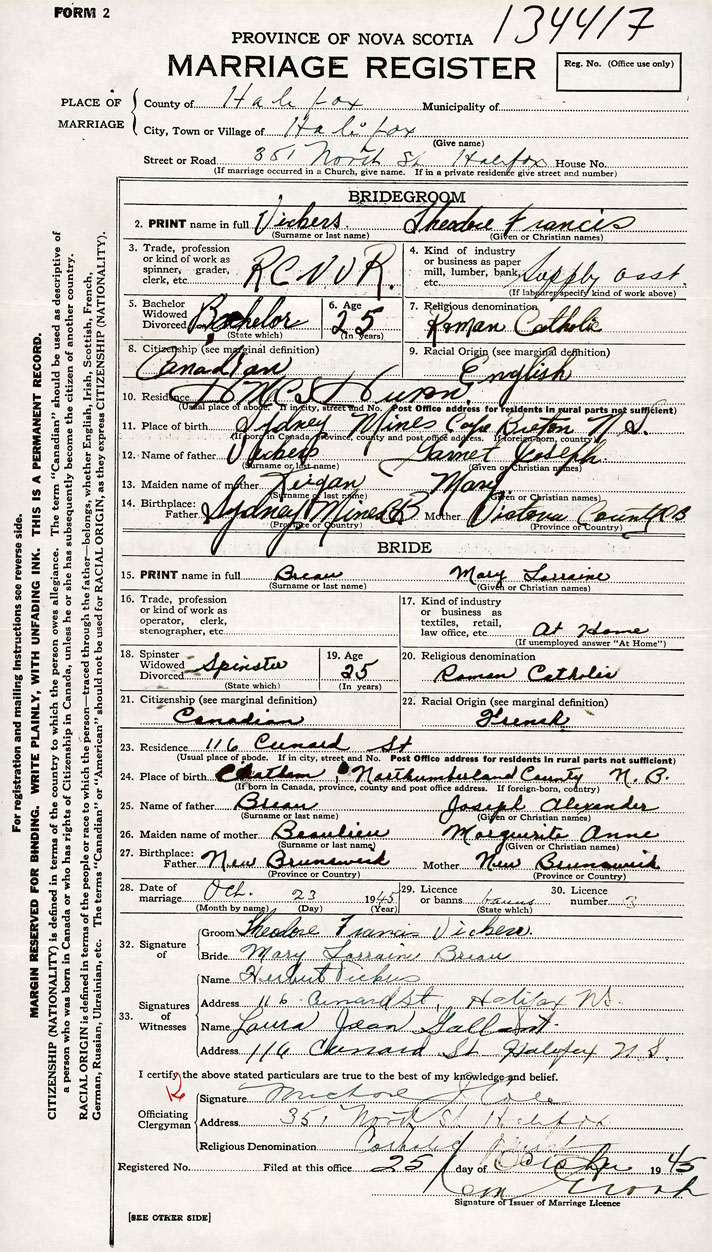 FORM 2
134417
PROVINCE OF NOVA SCOTIA
MARRIAGE REGISTER
Reg. No. (Office use only)
PLACE OF MARRIAGE
County of Halifax Municipality of
City, Town or Village of Halifax
(Give name)
Street or Road 351 North St Halifax House No.
(If marriage occurred in a Church, give name. If in a private residence give street and number)
BRIDEGROOM
2. PRINT name in full Vickers Theodore Francis
(Surname or last name) (Given or Christian names)
3. Trade, profession or kind of work as spinner, grader, clerk, etc. R C N V R.
4. Kind of industry or business as paper mill, lumber, bank, etc. Supply asst.
(If labourer specify kind of work above)
5. Bachelor Widowed Divorced Bachelor
(State which)
6. Age 25
(In years)
7. Religious denomination Roman Catholic
8. Citizenship (see marginal definition) Canadian
9. Racial Origin (see marginal definition) English
10. Residence H M C S
(Usual place of abode. If in city, street and No. Post Office address for residents in rural parts not sufficient)
11. Place of birth Sydney Mines Cape Breton N.S.
(If born in Canada, province, county and post office address. If foreign-born, country)
12. Name of father Vickers Garnet Joseph
(Surname or last name) (Given or Christian names)
13. Maiden name of mother Mary
(Surname or last name) (Given or Christian names)
14. Birthplace: Father Sydney Mines CB Mother Victoria County CB
(Province or Country) (Province or Country)
BRIDE
15. PRINT name in full Breau Mary Lorraine
(Surname or last name) (Given or Christian names)
16. Trade, profession or kind of work as operator, clerk, stenographer, etc.
17. Kind of industry or business as textiles, retail, law office, etc. At Home
(If unemployed answer "At Home")
18. Spinster Widowed Divorced Spinster
(State which)
19. Age 25
(In years)
20. Religious denomination Roman Catholic
21. Citizenship (see marginal definition) Canadian
22. Racial Origin (see marginal definition) French
23. Residence 116 Cunard St
(Usual place of abode. If in city, street and No. Post Office address for residents in rural parts not sufficient)
24. Place of birth Chatham Northumberland County N.B.
(If born in Canada, province, county and post office address. If foreign-born, country)
25. Name of father Breau Joseph Alexander
(Surname or last name) (Given or Christian names)
26. Maiden name of mother Beaulieu Marguerite Anne
(Surname or last name) (Given or Christian names)
27. Birthplace: Father New Brunswick Mother New Brunswick
(Province or Country) (Province or Country)
28. Date of marriage Oct. 23 1945
(Month by name) (Day) (Year)
29. Licence or banns banns
(State which)
30. Licence number
32. Signature of
Groom Theodore Francis Vickers
Bride Mary Lorraine Breau
33. Signatures of Witnesses
Name Herbert Vickers
Address 116 Cunard St, Halifax NS.
Name Laura Jean Gallant
Address 116 Cunard St Halifax N S.
I certify the above stated particulars are true to the best of my knowledge and belief.
Officiating Clergyman
Signature
Address 351 North St Halifax
Religious Denomination Catholic
Registered No. Filed at this office 25 day of October 1945
Signature of Issuer of Marriage Licence
[SEE OTHER SIDE]
For registration and mailing instructions see reverse side.
MARGIN RESERVED FOR BINDING. WRITE PLAINLY, WITH UNFADING INK. THIS IS A PERMANENT RECORD.
CITIZENSHIP (NATIONALITY) is defined in terms of the country to which the person owes allegiance. The term "Canadian" should be used as descriptive of
a person who was born in Canada or who has rights of Citizenship in Canada, unless he or she has subsequently become the citizen of another country.
RACIAL ORIGIN is defined in terms of the people or race to which the person—traced through the father—belongs, whether English, Irish, Scottish, French,
German, Russian, Ukrainian, etc. The terms "Canadian" or "American" should not be used for RACIAL ORIGIN, as they express CITIZENSHIP (NATIONALITY).